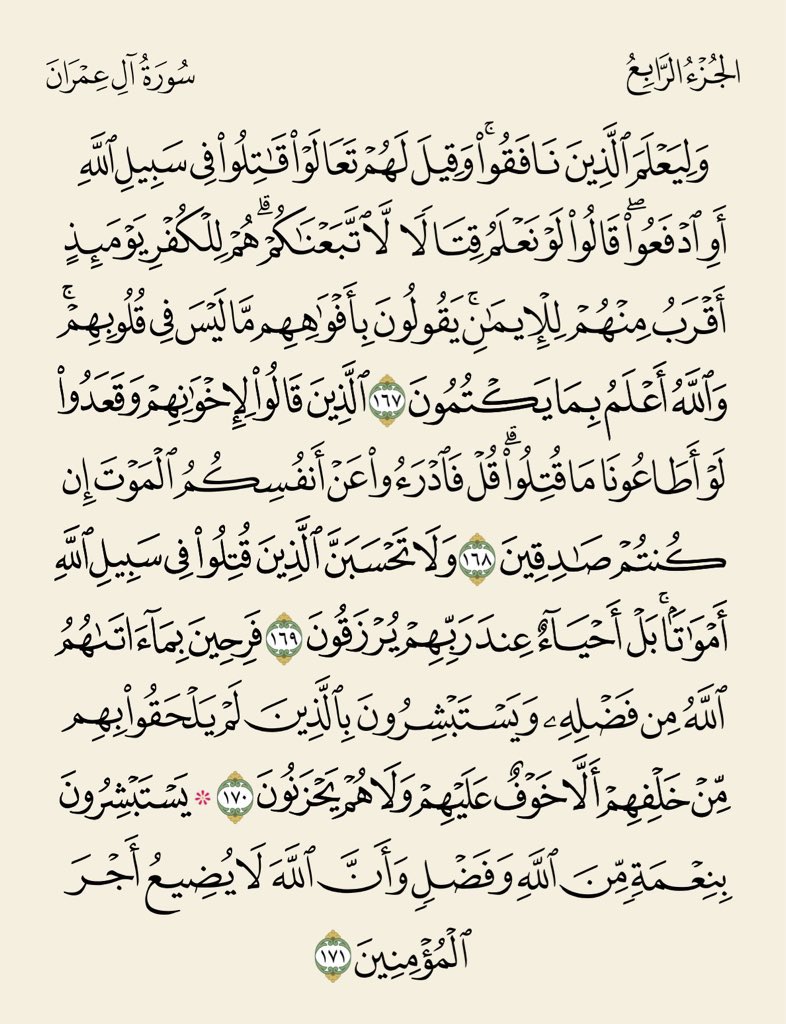 الجُزْءُ الرَّابِعُ
سُورَةُ آلِ عِمْرَانَ
وَلِيَعْلَمَ ٱلَّذِينَ نَافَقُوا۟ۚ وَقِيلَ لَهُمْ تَعَالَوْا۟ قَٰتِلُوا۟ فِى سَبِيلِ ٱللَّهِ
أَوِ ٱدْفَعُوا۟ۖ قَالُوا۟ لَوْ نَعْلَمُ قِتَالًا لَّٱتَّبَعْنَٰكُمْۗ هُمْ لِلْكُفْرِ يَوْمَئِذٍ
أَقْرَبُ مِنْهُمْ لِلْإِيمَٰنِۚ يَقُولُونَ بِأَفْوَٰهِهِم مَّا لَيْسَ فِى قُلُوبِهِمْۚ
وَٱللَّهُ أَعْلَمُ بِمَا يَكْتُمُونَ ١٦٧ ٱلَّذِينَ قَالُوا۟ لِإِخْوَٰنِهِمْ وَقَعَدُوا۟
لَوْ أَطَاعُونَا مَا قُتِلُوا۟ۗ قُلْ فَٱدْرَءُوا۟ عَنْ أَنفُسِكُمُ ٱلْمَوْتَ إِن
كُنتُمْ صَٰدِقِينَ ١٦٨ وَلَا تَحْسَبَنَّ ٱلَّذِينَ قُتِلُوا۟ فِى سَبِيلِ ٱللَّهِ
أَمْوَٰتًۢاۚ بَلْ أَحْيَآءٌ عِندَ رَبِّهِمْ يُرْزَقُونَ ١٦٩ فَرِحِينَ بِمَآ ءَاتَىٰهُمُ
ٱللَّهُ مِن فَضْلِهِۦ وَيَسْتَبْشِرُونَ بِٱلَّذِينَ لَمْ يَلْحَقُوا۟ بِهِم
مِّنْ خَلْفِهِمْ أَلَّا خَوْفٌ عَلَيْهِمْ وَلَا هُمْ يَحْزَنُونَ ١٧٠ * يَسْتَبْشِرُونَ
بِنِعْمَةٍ مِّنَ ٱللَّهِ وَفَضْلٍ وَأَنَّ ٱللَّهَ لَا يُضِيعُ أَجْرَ
ٱلْمُؤْمِنِينَ ١٧١